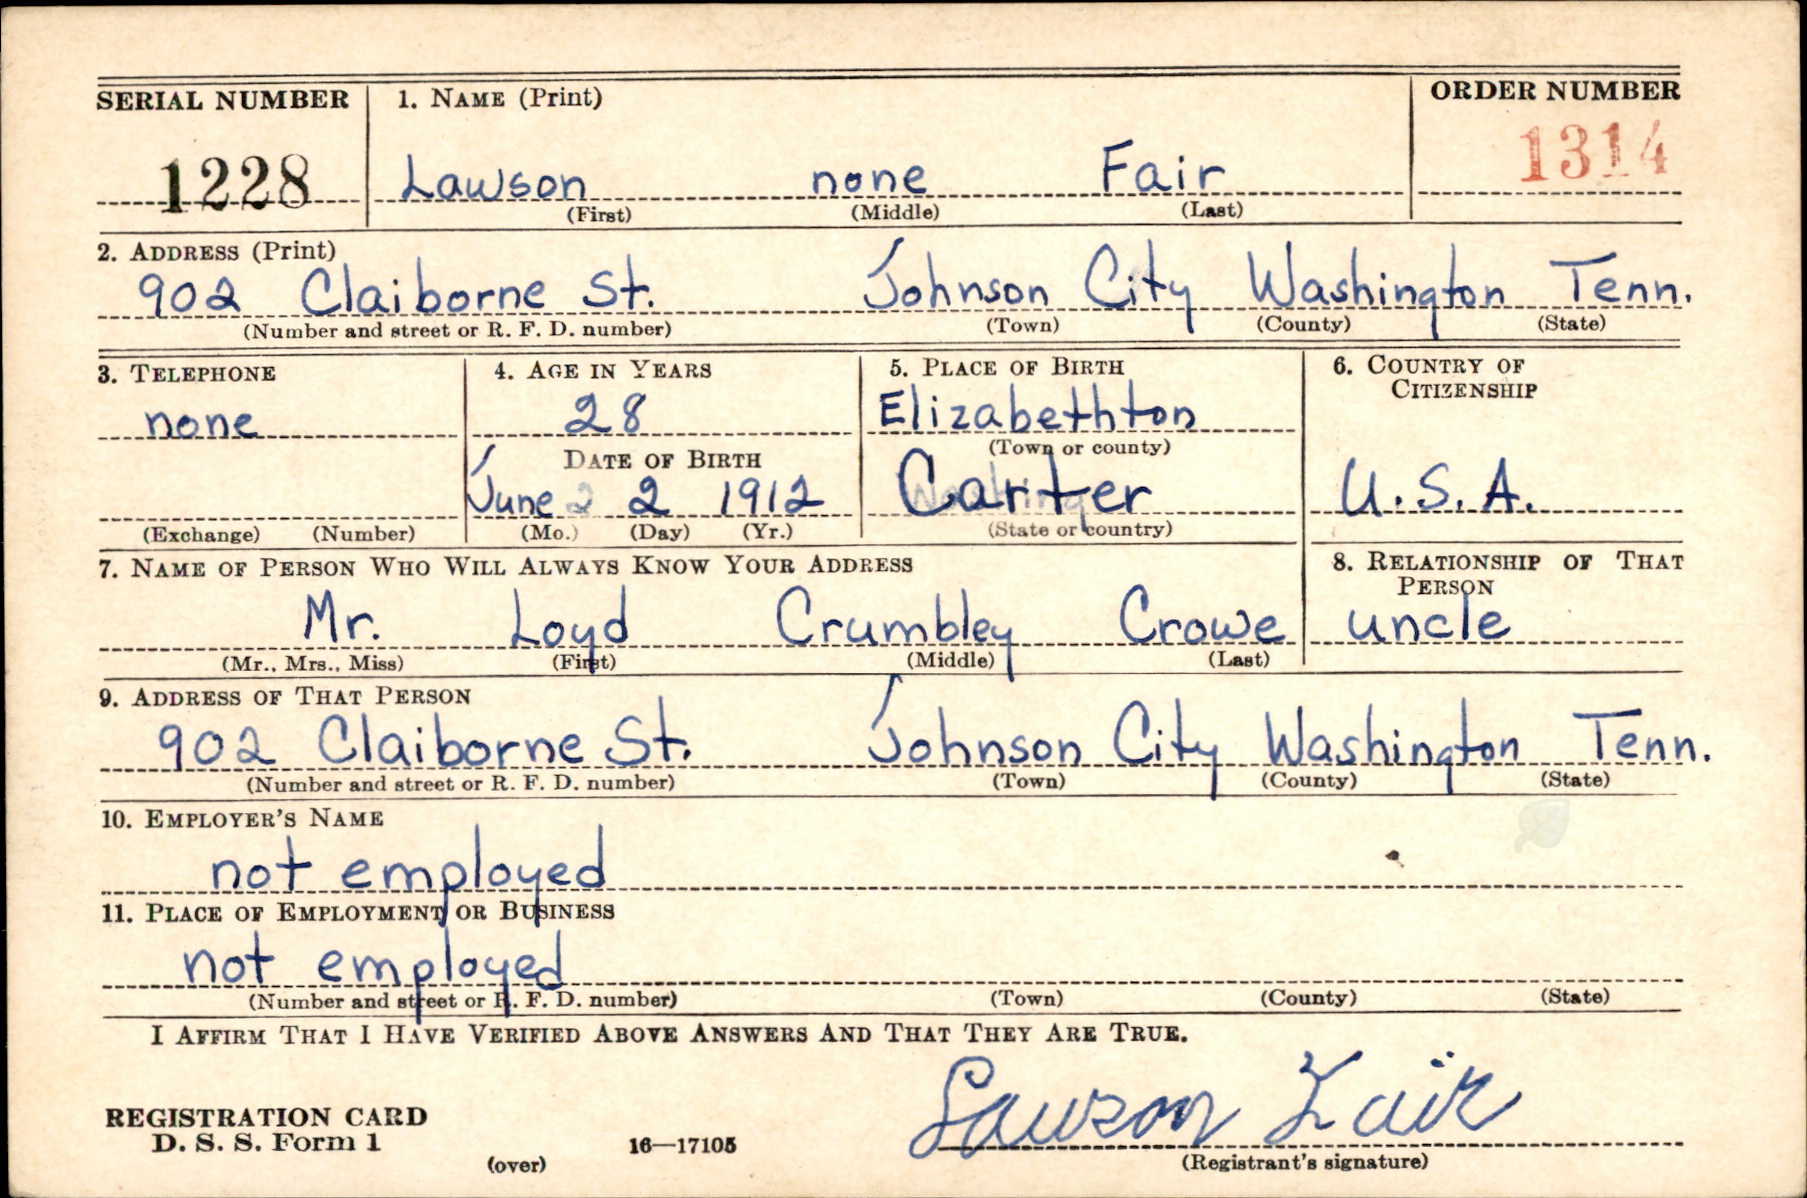 SERIAL NUMBER 1. NAME (Print) ORDER NUMBER
1228 Lawson none Fair 1314
(First) (Middle) (Last)
2. ADDRESS (Print)
902 Claiborne St. Johnson City Washington Tenn.
(Number and street or R. F. D. number) (Town) (County) (State)
3. TELEPHONE 4. AGE IN YEARS 5. PLACE OF BIRTH 6. COUNTRY OF CITIZENSHIP
none 28 Elizabethton
(Town or county)
DATE OF BIRTH
June 2 1912 Carter U.S.A.
(Exchange) (Number) (Mo.) (Day) (Yr.) (State or country)
7. NAME OF PERSON WHO WILL ALWAYS KNOW YOUR ADDRESS 8. RELATIONSHIP OF THAT PERSON
Mr. Loyd Crumbley Crowe uncle
(Mr., Mrs., Miss) (First) (Middle) (Last)
9. ADDRESS OF THAT PERSON
902 Claiborne St. Johnson City Washington Tenn.
(Number and street or R. F. D. number) (Town) (County) (State)
10. EMPLOYER'S NAME
not employed
11. PLACE OF EMPLOYMENT OR BUSINESS
not employed
(Number and street or R. F. D. number) (Town) (County) (State)
I AFFIRM THAT I HAVE VERIFIED ABOVE ANSWERS AND THAT THEY ARE TRUE.
REGISTRATION CARD
D. S. S. Form 1 16—17105 Lawson Fair
(over) (Registrant's signature)